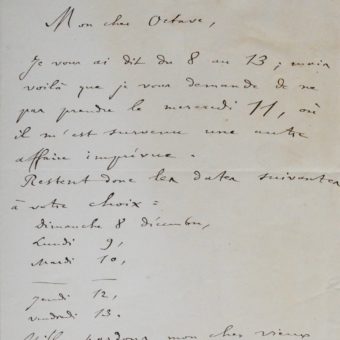 Mon cher Octave,
Je vous ai dit du 8 au 13 ; mais
voilà que je vous demande de ne
pas prendre le mercredi 11, où
il m'est survenu une autre
affaire imprévue.
Restent donc les dates suivantes
à votre choix :
Dimanche 8 décembre,
Lundi 9,
Mardi 10,
Jeudi 12,
vendredi 13.
Mille pardons mon cher vieux